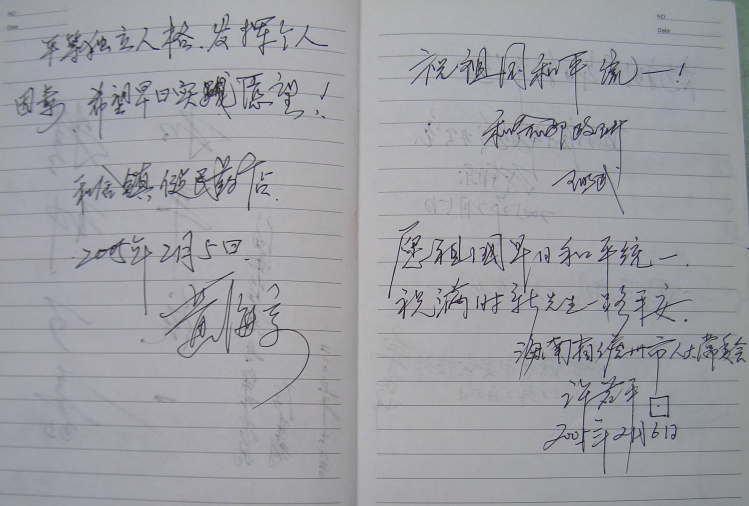 NO
Date
平等独立人格、发挥个人
因素、希望早日实现愿望!
和信镇便民药店
2005年2月5日
NO
Date
祝祖国和平统一!
愿祖国早日和平统一.
祝满时新先生一路平安.
海南省儋州市人大常委会
许若平
2005年2月6日